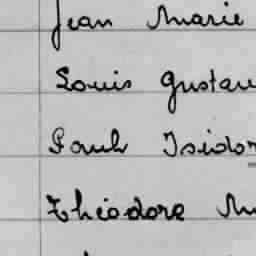 Jean Marie
Louis Gustav
Paul Isidor
Théodore